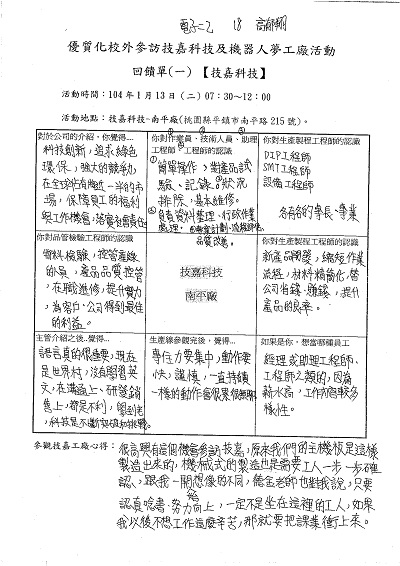 電子二乙 18 高
優質化校外參訪技嘉科技及機器人夢工廠活動
回饋單(一)【技嘉科技】
活動時間：104年1月13日(二) 07：30～12：00
活動地點：技嘉科技-南平廠(桃園縣平鎮市南平路215號)。
對於公司的介紹，你覺得…
科技創新，追求綠色
環保，強大的競爭力,
在全球佔有將近一半的市
場，保障員工的福利
與工作機會，
你對作業員、技術人員、助理
工程師、工程師的認識
①簡單操作 ②對產品試
驗、記錄。③狀況
排除，基本維修。
④負責資料整理、行政作業
處理。
品質改善。
你對生產製程工程師的認識
DIP工程師
SMT工程師
設備工程師
各有各的專長、專業
你對品管檢驗工程師的認識
資料檢驗，控管產線
的員，產品品質控管
，在職進修，提升實力
，為客戶、公司得到最佳
的利益。
技嘉科技
南平廠
你對生產製程工程師的認識
新產品開發，縮短作業
流程，材料精簡化，替
公司省錢、賺錢，提升
產品的良率。
主管介紹之後..覺得…
語言真的很重要，現在
是世界村，沒有學習英
文，在溝通上、研發銷
售上，都是不利，學到老
，科技是不斷
生產線參觀完後，覺得…
專注力要集中，動作要
快、謹慎，一直持續
一樣的動作會很累很無聊
如果是你，想當哪種員工
經理或助理工程師、
工程師之類的，因為
薪水高，工作內容較多
樣性。
參觀技嘉工廠心得：
很高興有這個機會參訪技嘉，原來我們的主機板是這樣
製造出來的，機械式的製造也是需要工人一步一步確
認，跟我一開始想像的不同，老師也對我說，只要
認真唸書、努力向上，一定不是坐在這裡的工人，如果
我以後不想工作這麼辛苦，那就要把課業衝上來。